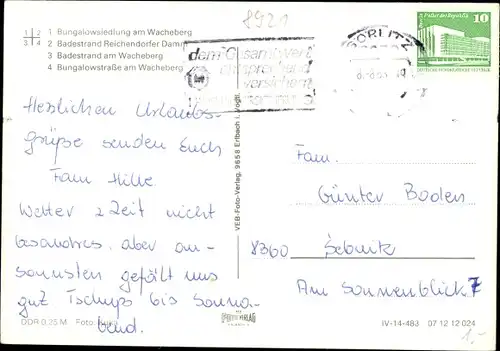 8921
1 | 2
3 | 4
1 Bungalowsiedlung am Wacheberg
2 Badestrand Reichendorfer Damm
3 Badestrand am Wacheberg
4 Bungalowstraße am Wacheberg
dem Gesamtwert
entsprechend
versichern
GÖRLITZ
Palast der Republik 10
DEUTSCHE DEMOKRATISCHE REPUBLIK
Herzlichen Urlaubs-
grüße senden Euch
Fam. Hilke
Wetter z Zeit nicht
besonders, aber an-
sonnsten gefällt uns
gut Tschüß bis Sonna-
bend.
VEB-Foto-Verlag, 9658 Erlbach i. Vogtl.
Fam.
Günter Boden
8360 Sebnitz
Am Sonnenblick 7
DDR 0,35 M Foto:
VERLAG
IV-14-483 07 12 12 024
1,-